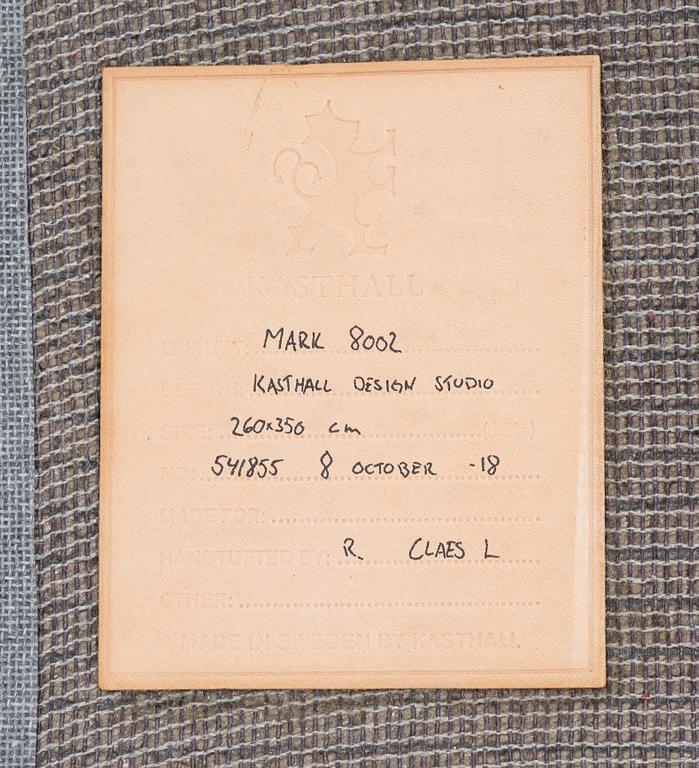 KASTHALL
QUALITY: MARK 8002
DESIGN: KASTHALL DESIGN STUDIO
SIZE: 260x350 cm
NO: 541855 8 OCTOBER -18
MADE FOR:
HANDTUFTED BY: R. CLAES L
OTHER:
MADE IN SWEDEN BY KASTHALL.